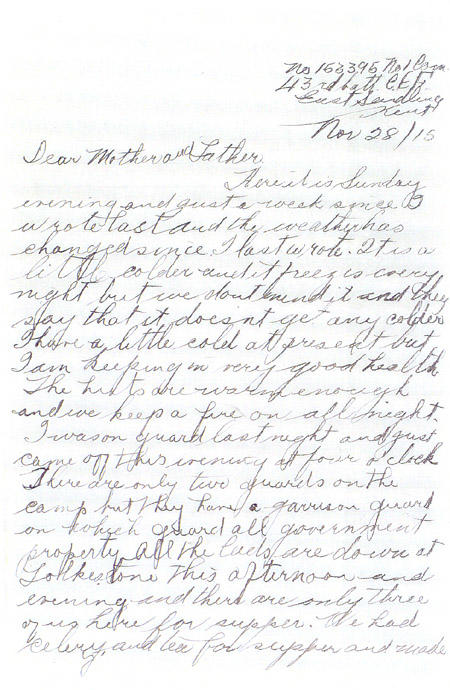 No 153395 No 1 Com
43rd batt C.E.F.
East Sandling
Kent
Nov 28/15
Dear Mother and Father
Here it is Sunday
evening and just a week since I
wrote last and the weather has
changed since I last wrote. It is a
little colder and it freezes every
night but we dont mind it and they
say that it doesnt get any colder
I have a little cold at present but
I am keeping in very good health
The huts are warm enough
and we keep a fire on all night.
I was on guard last night and just
came off this evening at four o'clock
There are only two guards on the
camp but they have a garrison guard
on which guard all government
property. All the lads are down at
Folkestone this afternoon and
evening and there are only three
of us here for supper. We had
celery and tea for supper and made